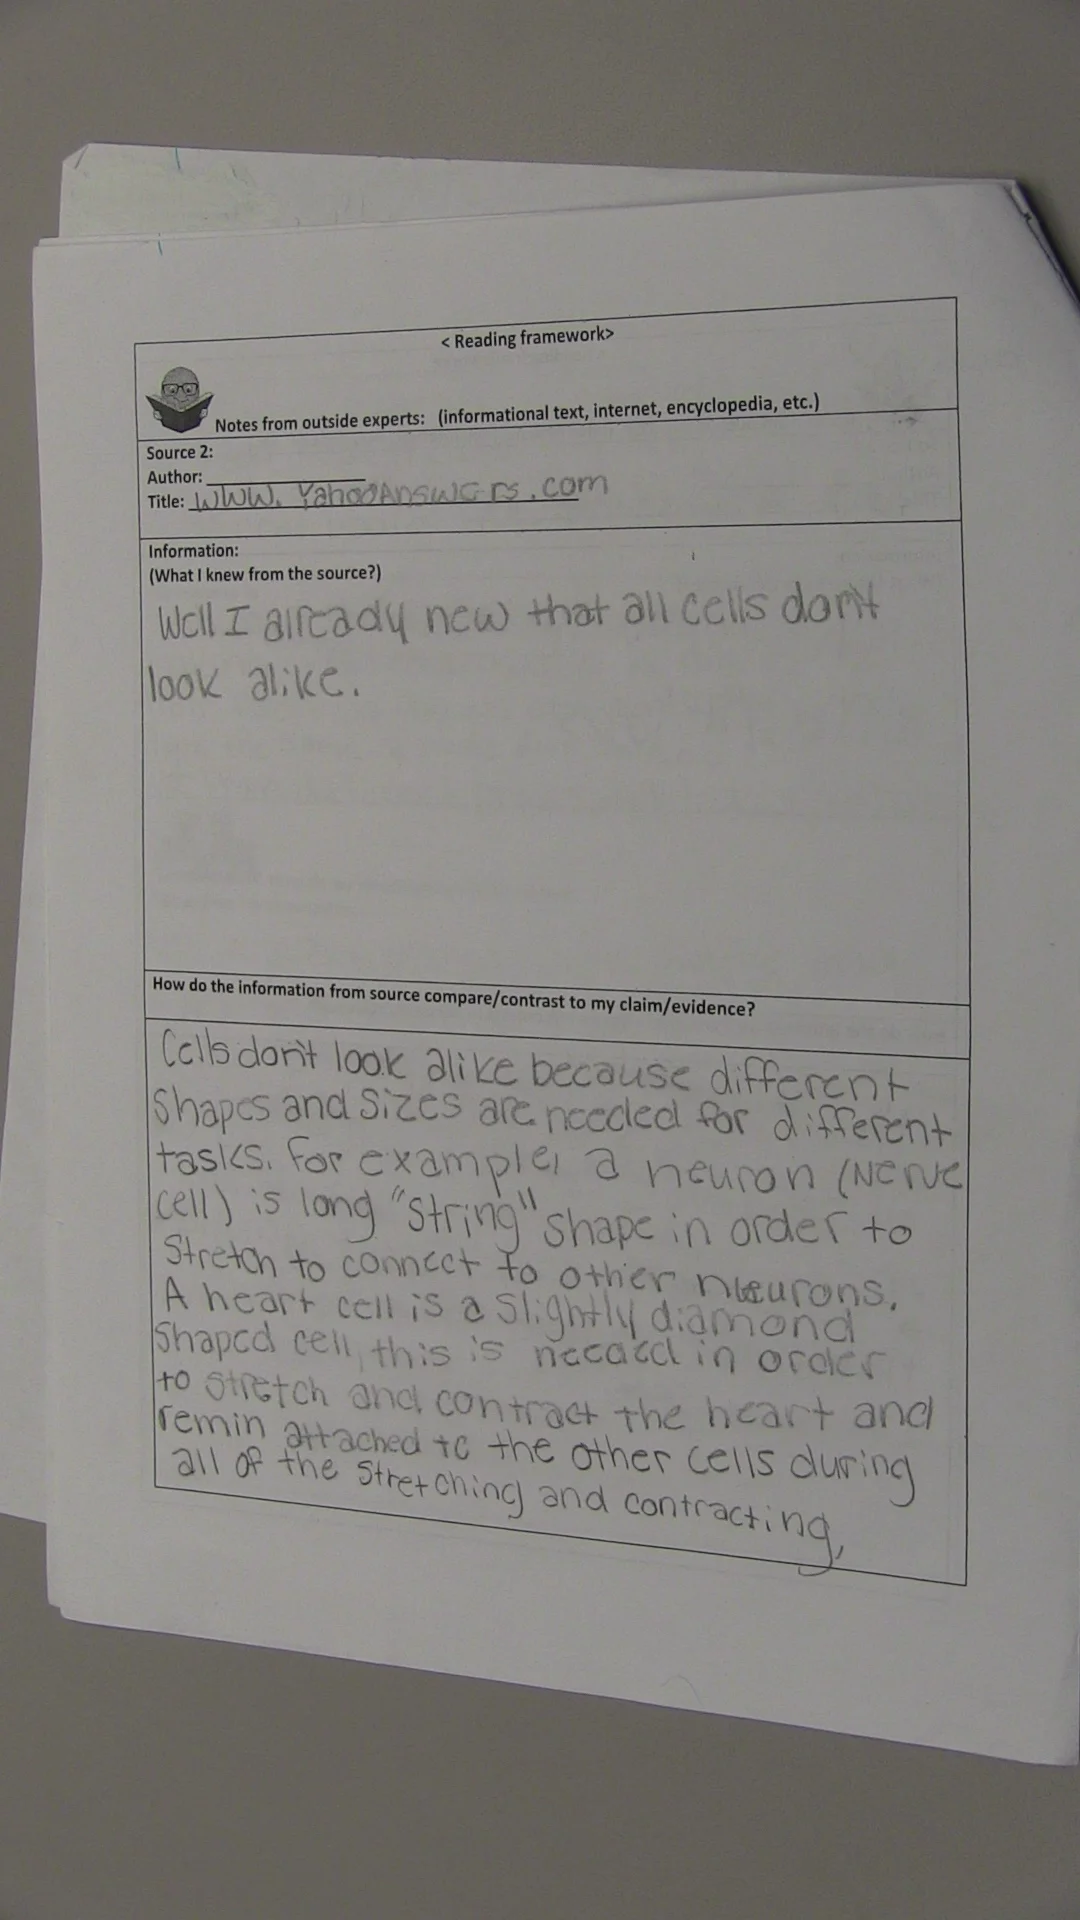 < Reading framework>
Notes from outside experts: (informational text, internet, encyclopedia, etc.)
Source 2:
Author:
Title: WWW. YahooAnswers.com
Information:
(What I knew from the source?)
Well I already new that all cells don't
look alike.
How do the information from source compare/contrast to my claim/evidence?
Cells don't look alike because different
Shapes and Sizes are needed for different
tasks. For example, a neuron (Nerve
cell) is long "string" shape in order to
Stretch to connect to other neurons.
A heart cell is a slightly diamond
Shaped cell, this is needed in order
to stretch and contract the heart and
remin attached to the other cells during
all of the stretching and contracting,